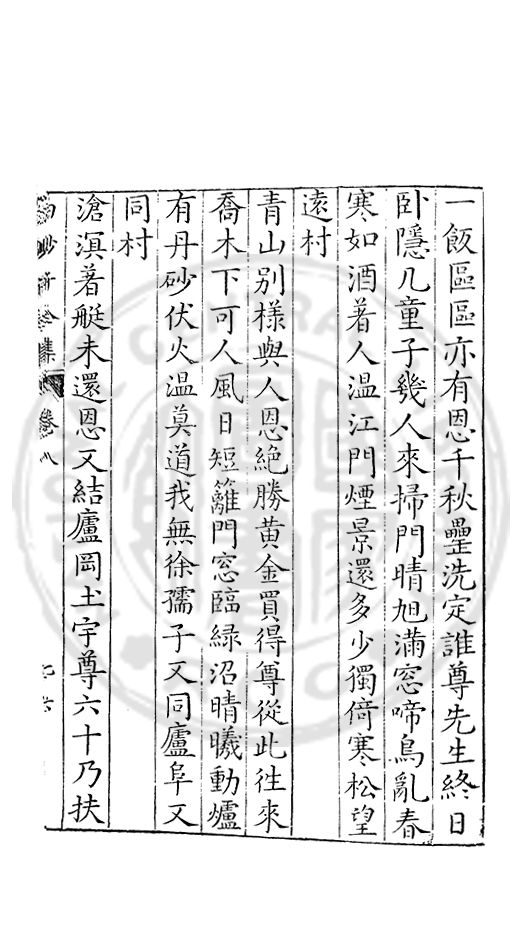 一飯區區亦有恩千秋罍洗定誰尊先生終日
卧隱几童子幾人來掃門晴旭滿窓啼鳥亂春
寒如酒著人溫江門煙景還多少獨倚寒松望
遠村
青山別樣與人恩絶勝黄金買得尊從此徃來
喬木下可人風日短籬門窓臨緑沼晴曦動爐
有丹砂伏火溫莫道我無徐孺子又同廬阜又
同村
滄溟著艇未還恩又結廬岡圡宇尊六十乃扶
集 卷八